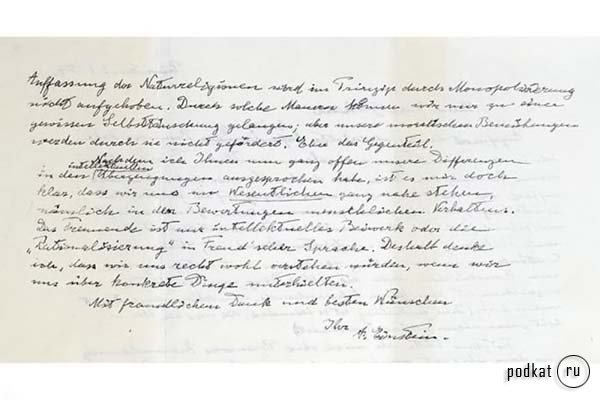 Auffassung der Naturreligionen wird im Prinzip durch Monopolisierung
nicht aufgehoben. Durch solche Mauern können wir nur zu einer
gewissen Selbsttäuschung gelangen; aber unsere moralischen Bemühungen
werden durch sie nicht gefördert. Eher das Gegenteil.
Nachdem ich Ihnen nun ganz offen unsere Differenzen
intellektuellen
in den Überzeugungen ausgesprochen habe, ist es mir doch
klar, dass wir uns im Wesentlichen ganz nahe stehen,
nämlich in den Bewertungen menschlichen Verhaltens.
Das Trennende ist nur intellektuelles Beiwerk oder die
„Rationalisierung" in Freud'scher Sprache. Deshalb denke
ich, dass wir uns recht wohl verstehen würden, wenn wir
uns über konkrete Dinge unterhielten.
Mit freundlichem Dank und besten Wünschen
Ihr
A. Einstein.
podkat ru